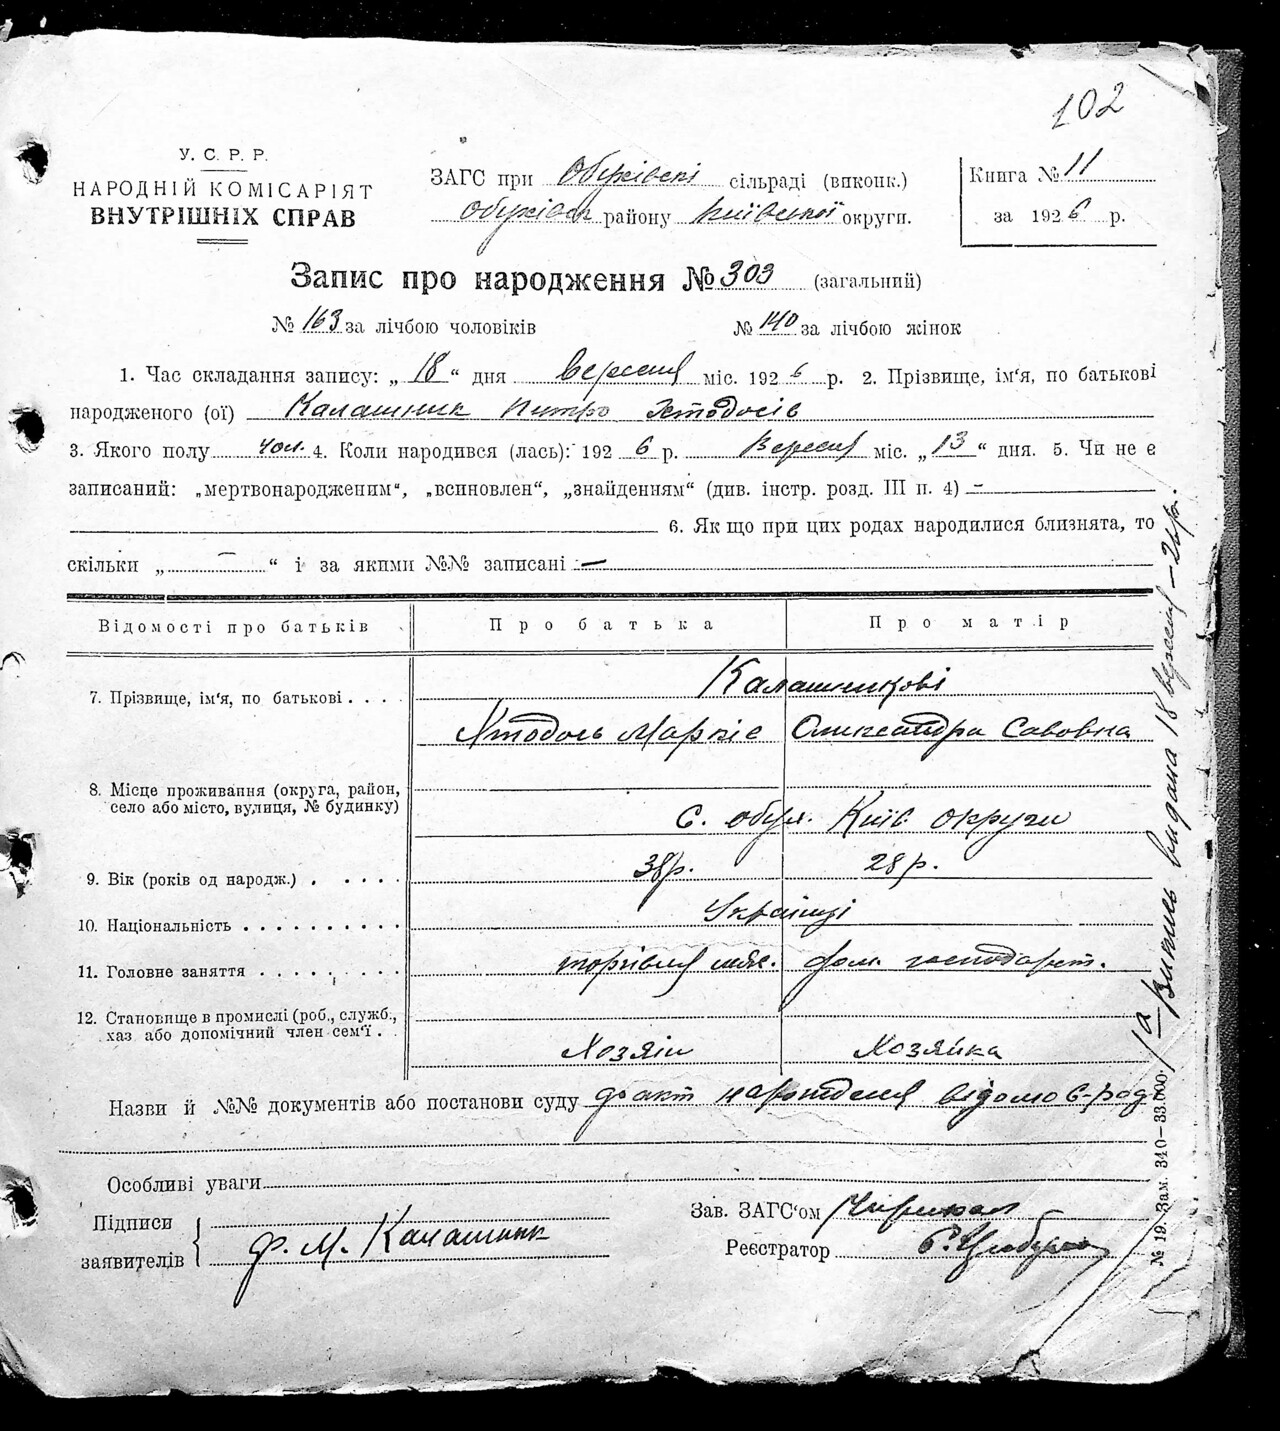 102
У. С. Р. Р.
НАРОДНІЙ КОМІСАРІЯТ
ВНУТРІШНІХ СПРАВ
ЗАГС при Обухівскі сільраді (виконк.)
Обухівск району Київської округи.
Книга № 11
за 1926 р.
Запис про народження № 303 (загальний)
№ 163 за лічбою чоловіків № 140 за лічбою жінок
1. Час складання запису: „ 18 “ дня вересня міс. 1926 р. 2. Прізвище, ім‘я, по батькові
народженого (ої) Калашник Питро
3. Якого полу чол. 4. Коли народився (лась): 1926 р. Вересня міс. „ 13 “ дня. 5. Чи не є
записаний: „мертвонародженим“, „всиновлен“, „знайденням“ (див. інстр. розд. III п. 4) —
6. Як що при цих родах народилися близнята, то
скільки „ — “ і за якими №№ записані —
Відомості про батьків Про батька Про матір
7. Прізвище, ім‘я, по батькові . . . . Калашникові
Маркіє Олександра Савовна
8. Місце проживання (округа, район,
село або місто, вулиця, № будинку)
с. обух. Київ округи
9. Вік (років од народж.) . . . . . 38р. 28р.
10. Національність . . . . . . . . . . Українці
11. Головне заняття . . . . . . . . торгівля домг. господарст.
12. Становище в промислі (роб., служб.,
хаз або допомічний член сем‘ї .
Хозяін Хозяйка
Назви й №№ документів або постанови суду факт народженя відомо с-рад
Особливі уваги
Підписи
заявителів
Ф. М. Калашник
Зав. ЗАГС‘ом
Реєстратор
№ 19. Зам. 340—33.000.
Випись видана 18 вересня — 26 р.